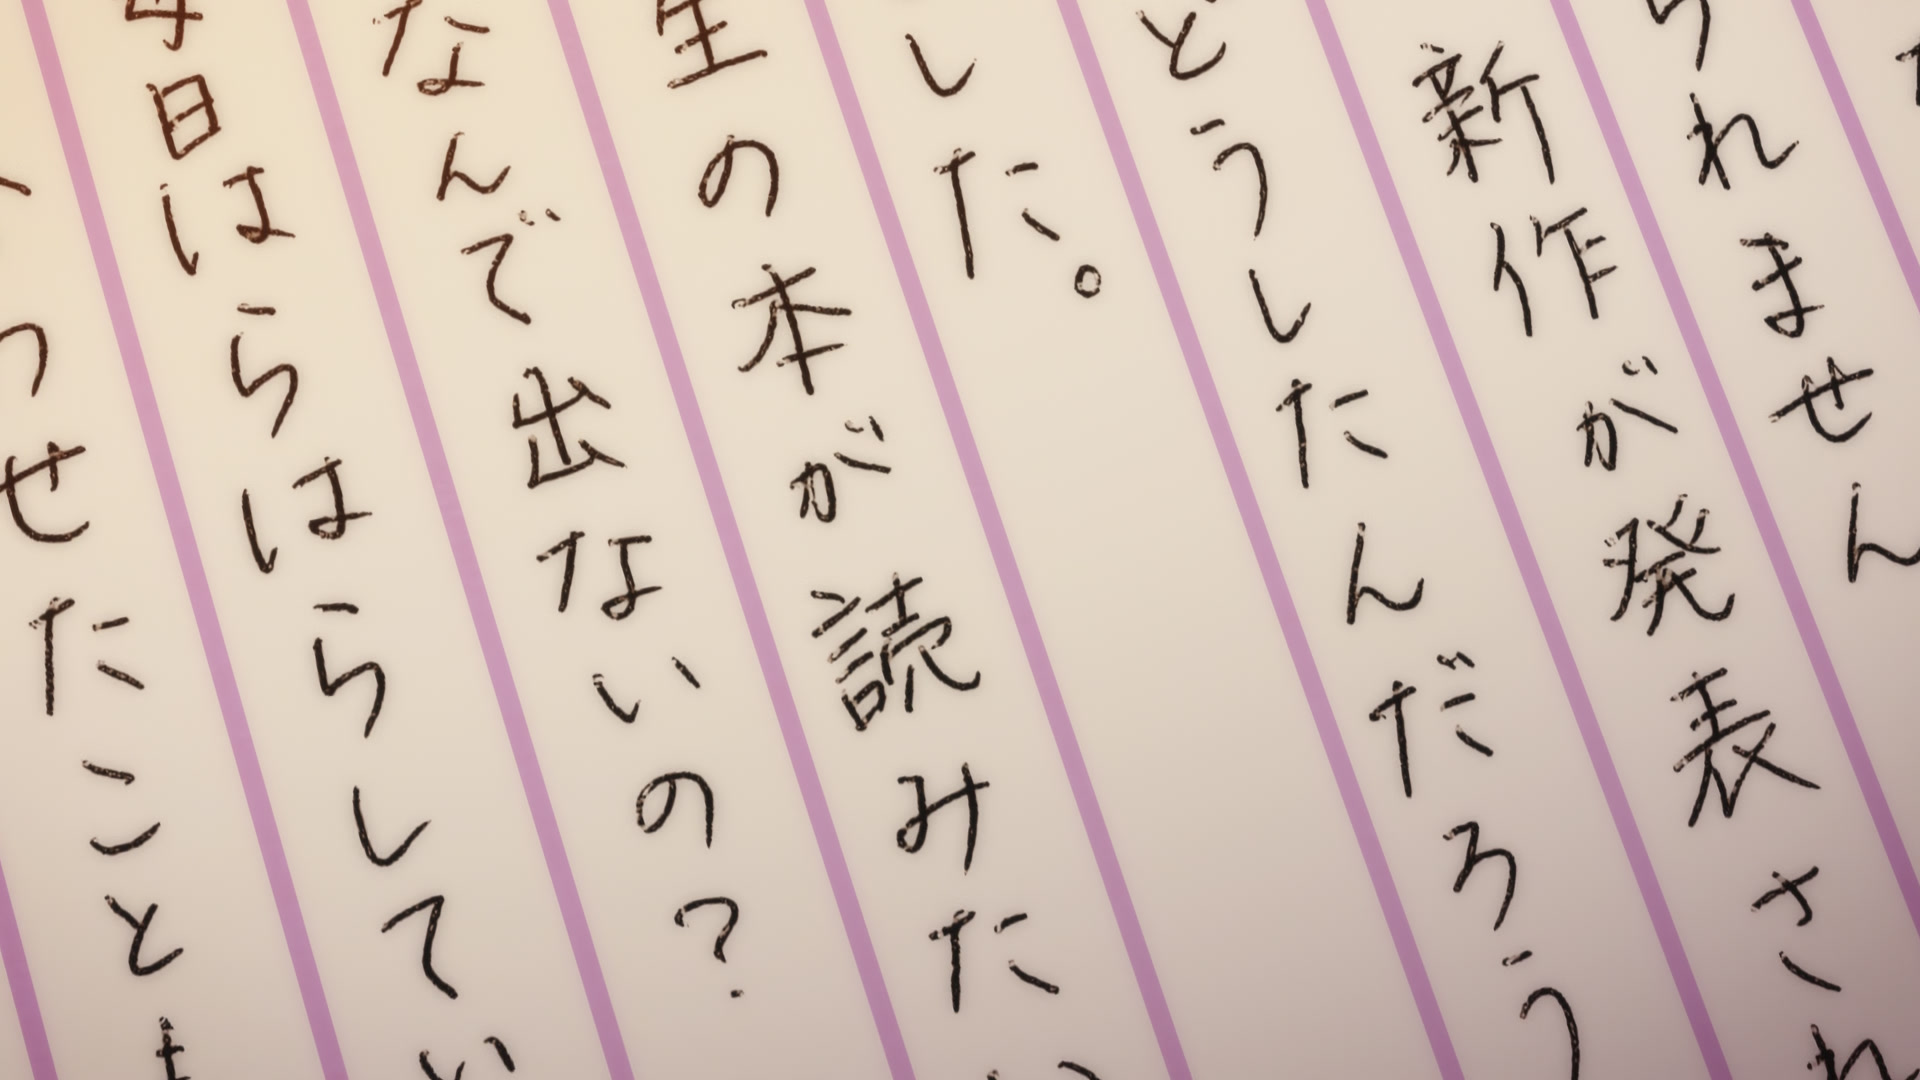 られません
新作が発表され
どうしたんだろう
した。
生の本が読みたい
なんで出ないの?
毎日はらはらしてい
せたこと